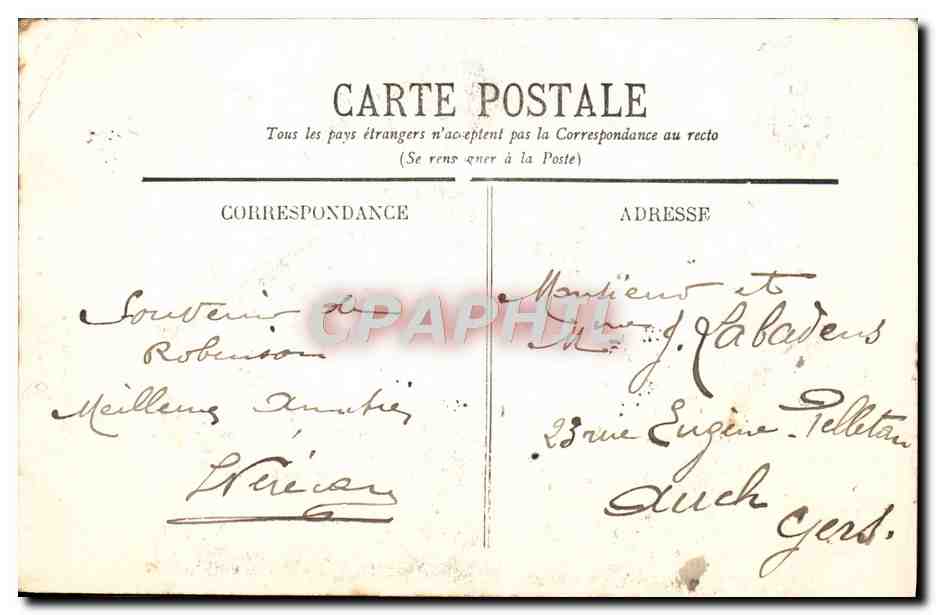 CARTE POSTALE
Tous les pays étrangers n'acceptent pas la Correspondance au recto
(Se renseigner à la Poste)
CORRESPONDANCE
ADRESSE
Souvenir de
Robinson
Meilleures Amitiés
Monsieur et
Mme J. Labadens
23 rue Eugène Pelletan
Auch
Gers.
CPAPHIL